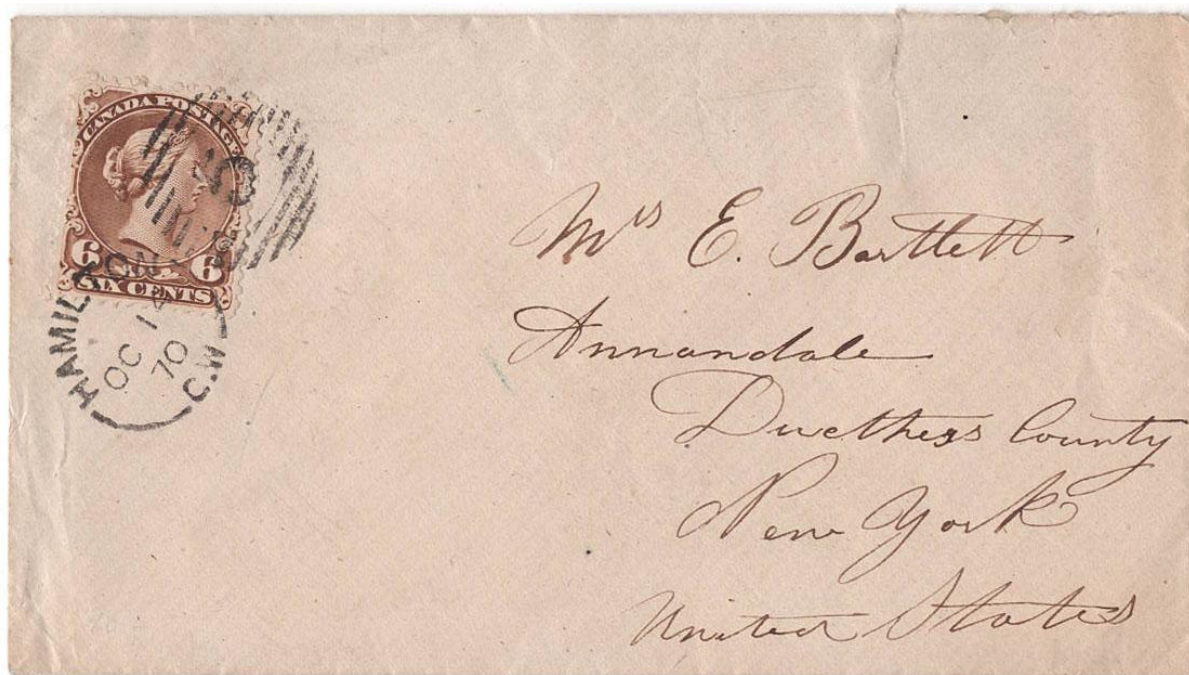 CANADA POSTAGE
6 6
SIX CENTS
5
HAMILTON
OC 1
70
C.W
Mrs E. Bartlett
Annandale
Ducthess County
New York
United States